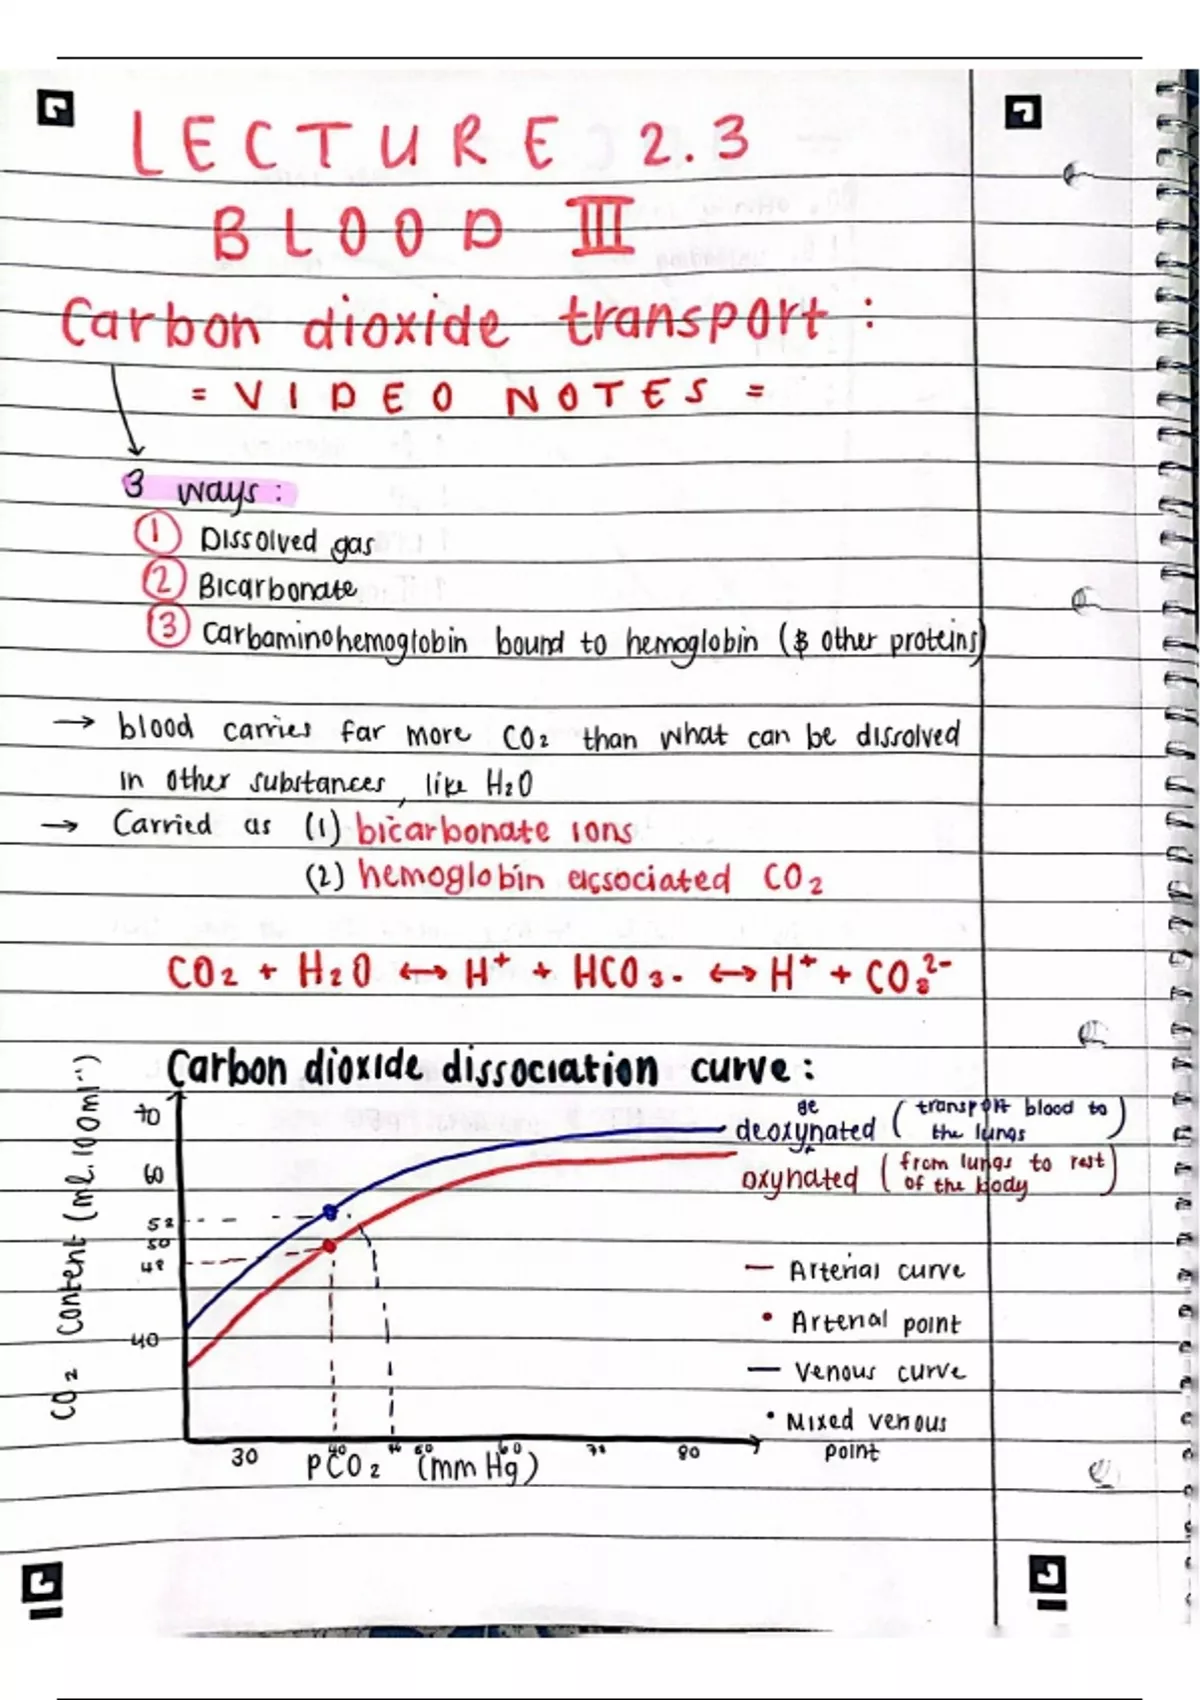 LECTURE 2.3
BLOOD III
Carbon dioxide transport :
= VIDEO NOTES =
3 ways :
1 Dissolved gas
2 Bicarbonate
3 Carbaminohemoglobin bound to hemoglobin (& other proteins)
→ blood carries far more CO2 than what can be dissolved
in other substances, like H2O
→ Carried as (1) bicarbonate ions
(2) hemoglobin associated CO2
CO2 + H2O ↔ H+ + HCO3- ↔ H+ + CO3 2-
Carbon dioxide dissociation curve :
CO2 content (ml.100ml-1)
70
60
52
50
48
40
ge
deoxynated (transport blood to
the lungs)
oxynated (from lungs to rest
of the body)
— Arterial curve
• Arterial point
— Venous curve
• Mixed venous
point
30 40 46 50 60 80
PCO2 (mm Hg)